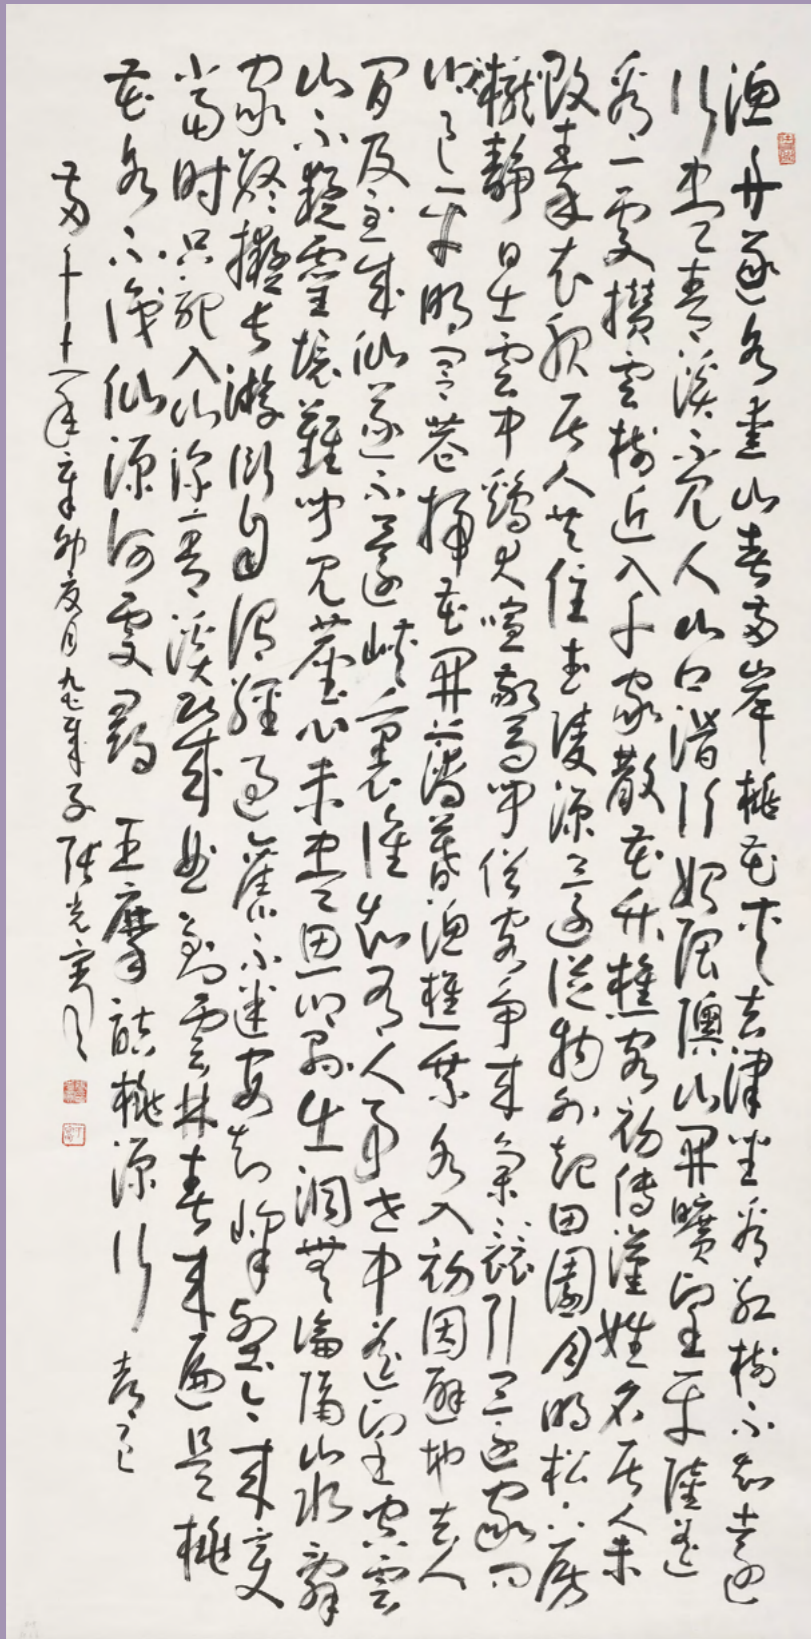 漁舟逐水愛山春兩岸桃花夾去津坐看紅樹不知遠
行盡青溪不見人山口潛行始隈隩山開曠望平陸遙
看一處攢雲樹近入千家散花竹樵客初傳漢姓名居人未
改秦衣服居人共住武陵源還從物外起田園月明松下房
櫳靜日出雲中雞犬喧驚聞俗客爭來集競引還家問
都邑平明閭巷掃花開薄暮漁樵乘水入初因避地去人
間及至成仙遂不還峽裏誰知有人事世中遙望空雲
山不疑靈境難聞見塵心未盡思鄉縣出洞無論隔山水辭
家終擬長游衍自謂經過舊不迷安知峰壑今來變
當時只記入山深青溪幾度到雲林春來遍是桃
花水不辨仙源何處尋 王摩詰桃源行
兩千十一年辛卯夏月九七歲子張光賓